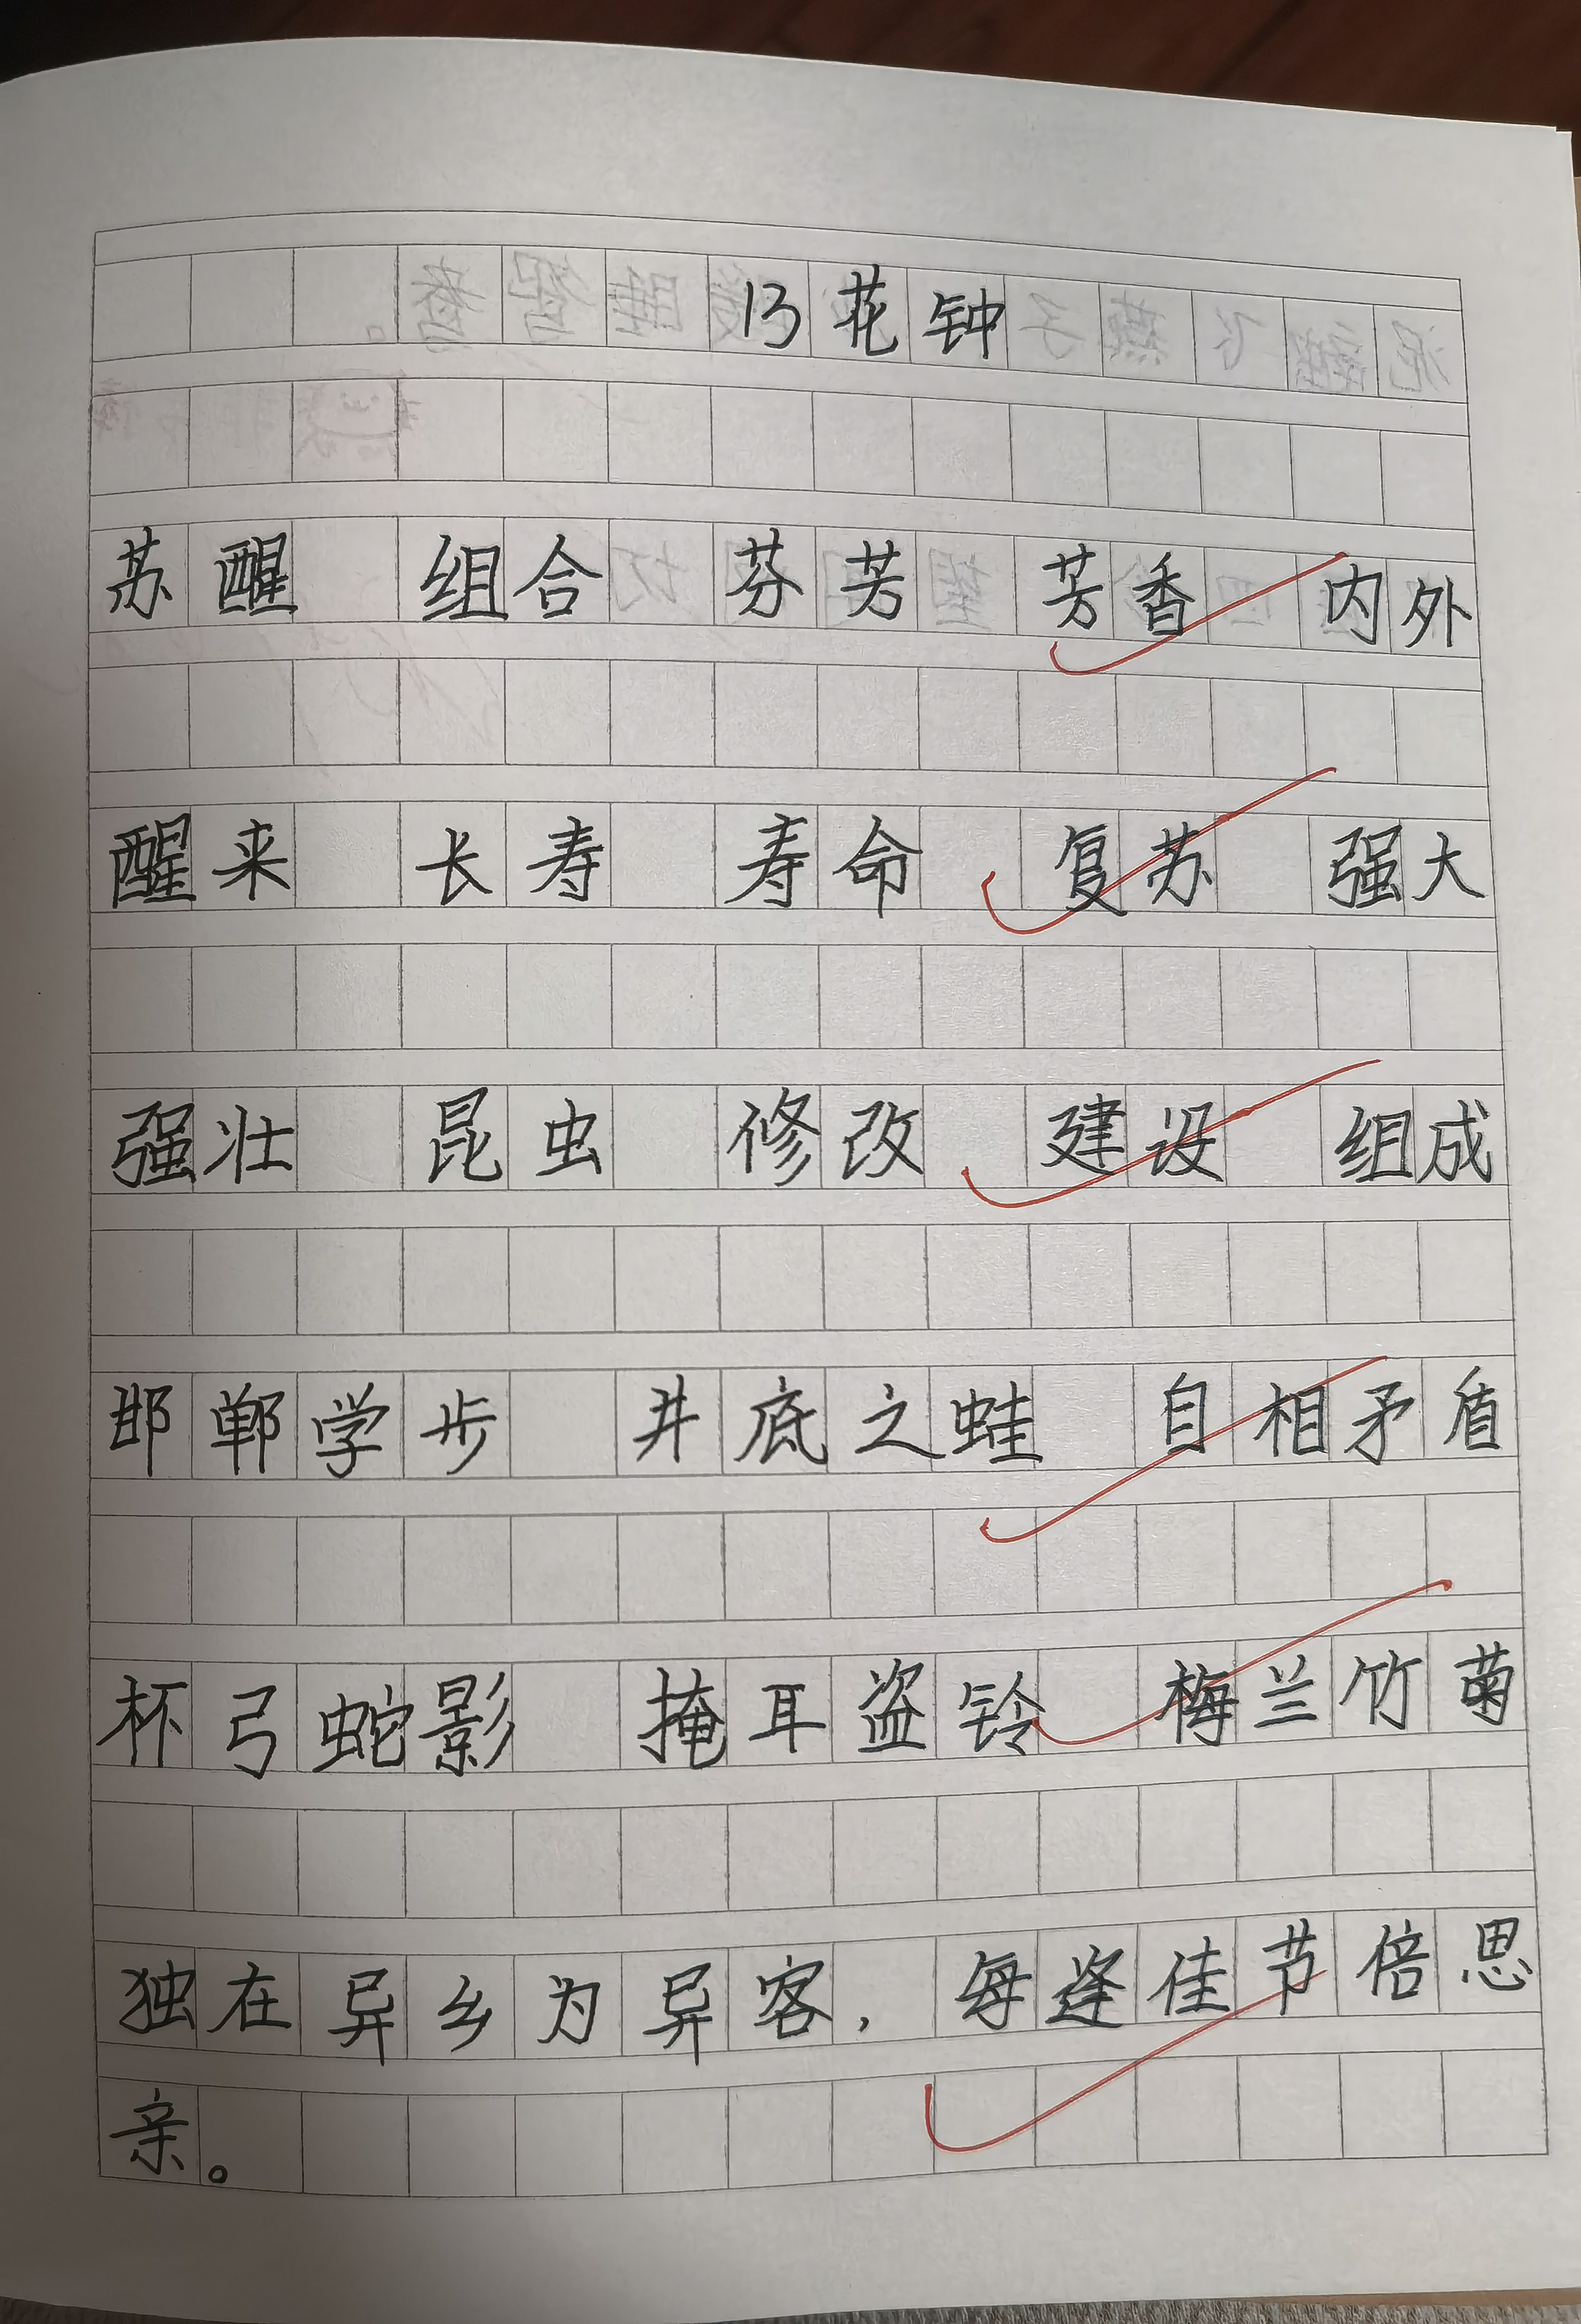 13花钟
苏醒 组合 芬芳 芳香 内外
醒来 长寿 寿命 复苏 强大
强壮 昆虫 修改 建设 组成
邯郸学步 井底之蛙 自相矛盾
杯弓蛇影 掩耳盗铃 梅兰竹菊
独在异乡为异客，每逢佳节倍思
亲。